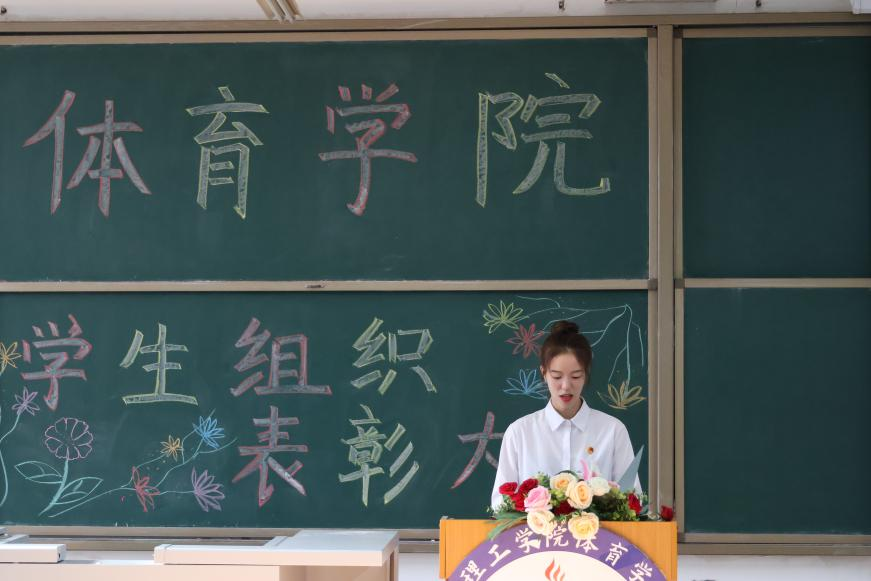 体育学院
学生组织
表彰大
理工学院体育学